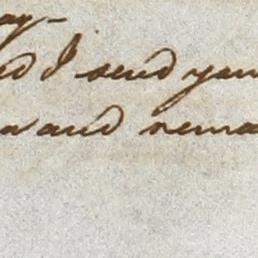 ay-
nd I send you
a and rema